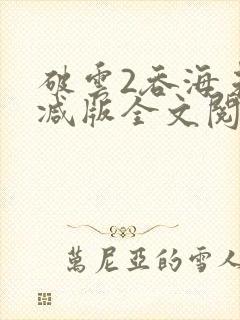 破雲2吞海未
減版全文閱
萬尼亞的雪人